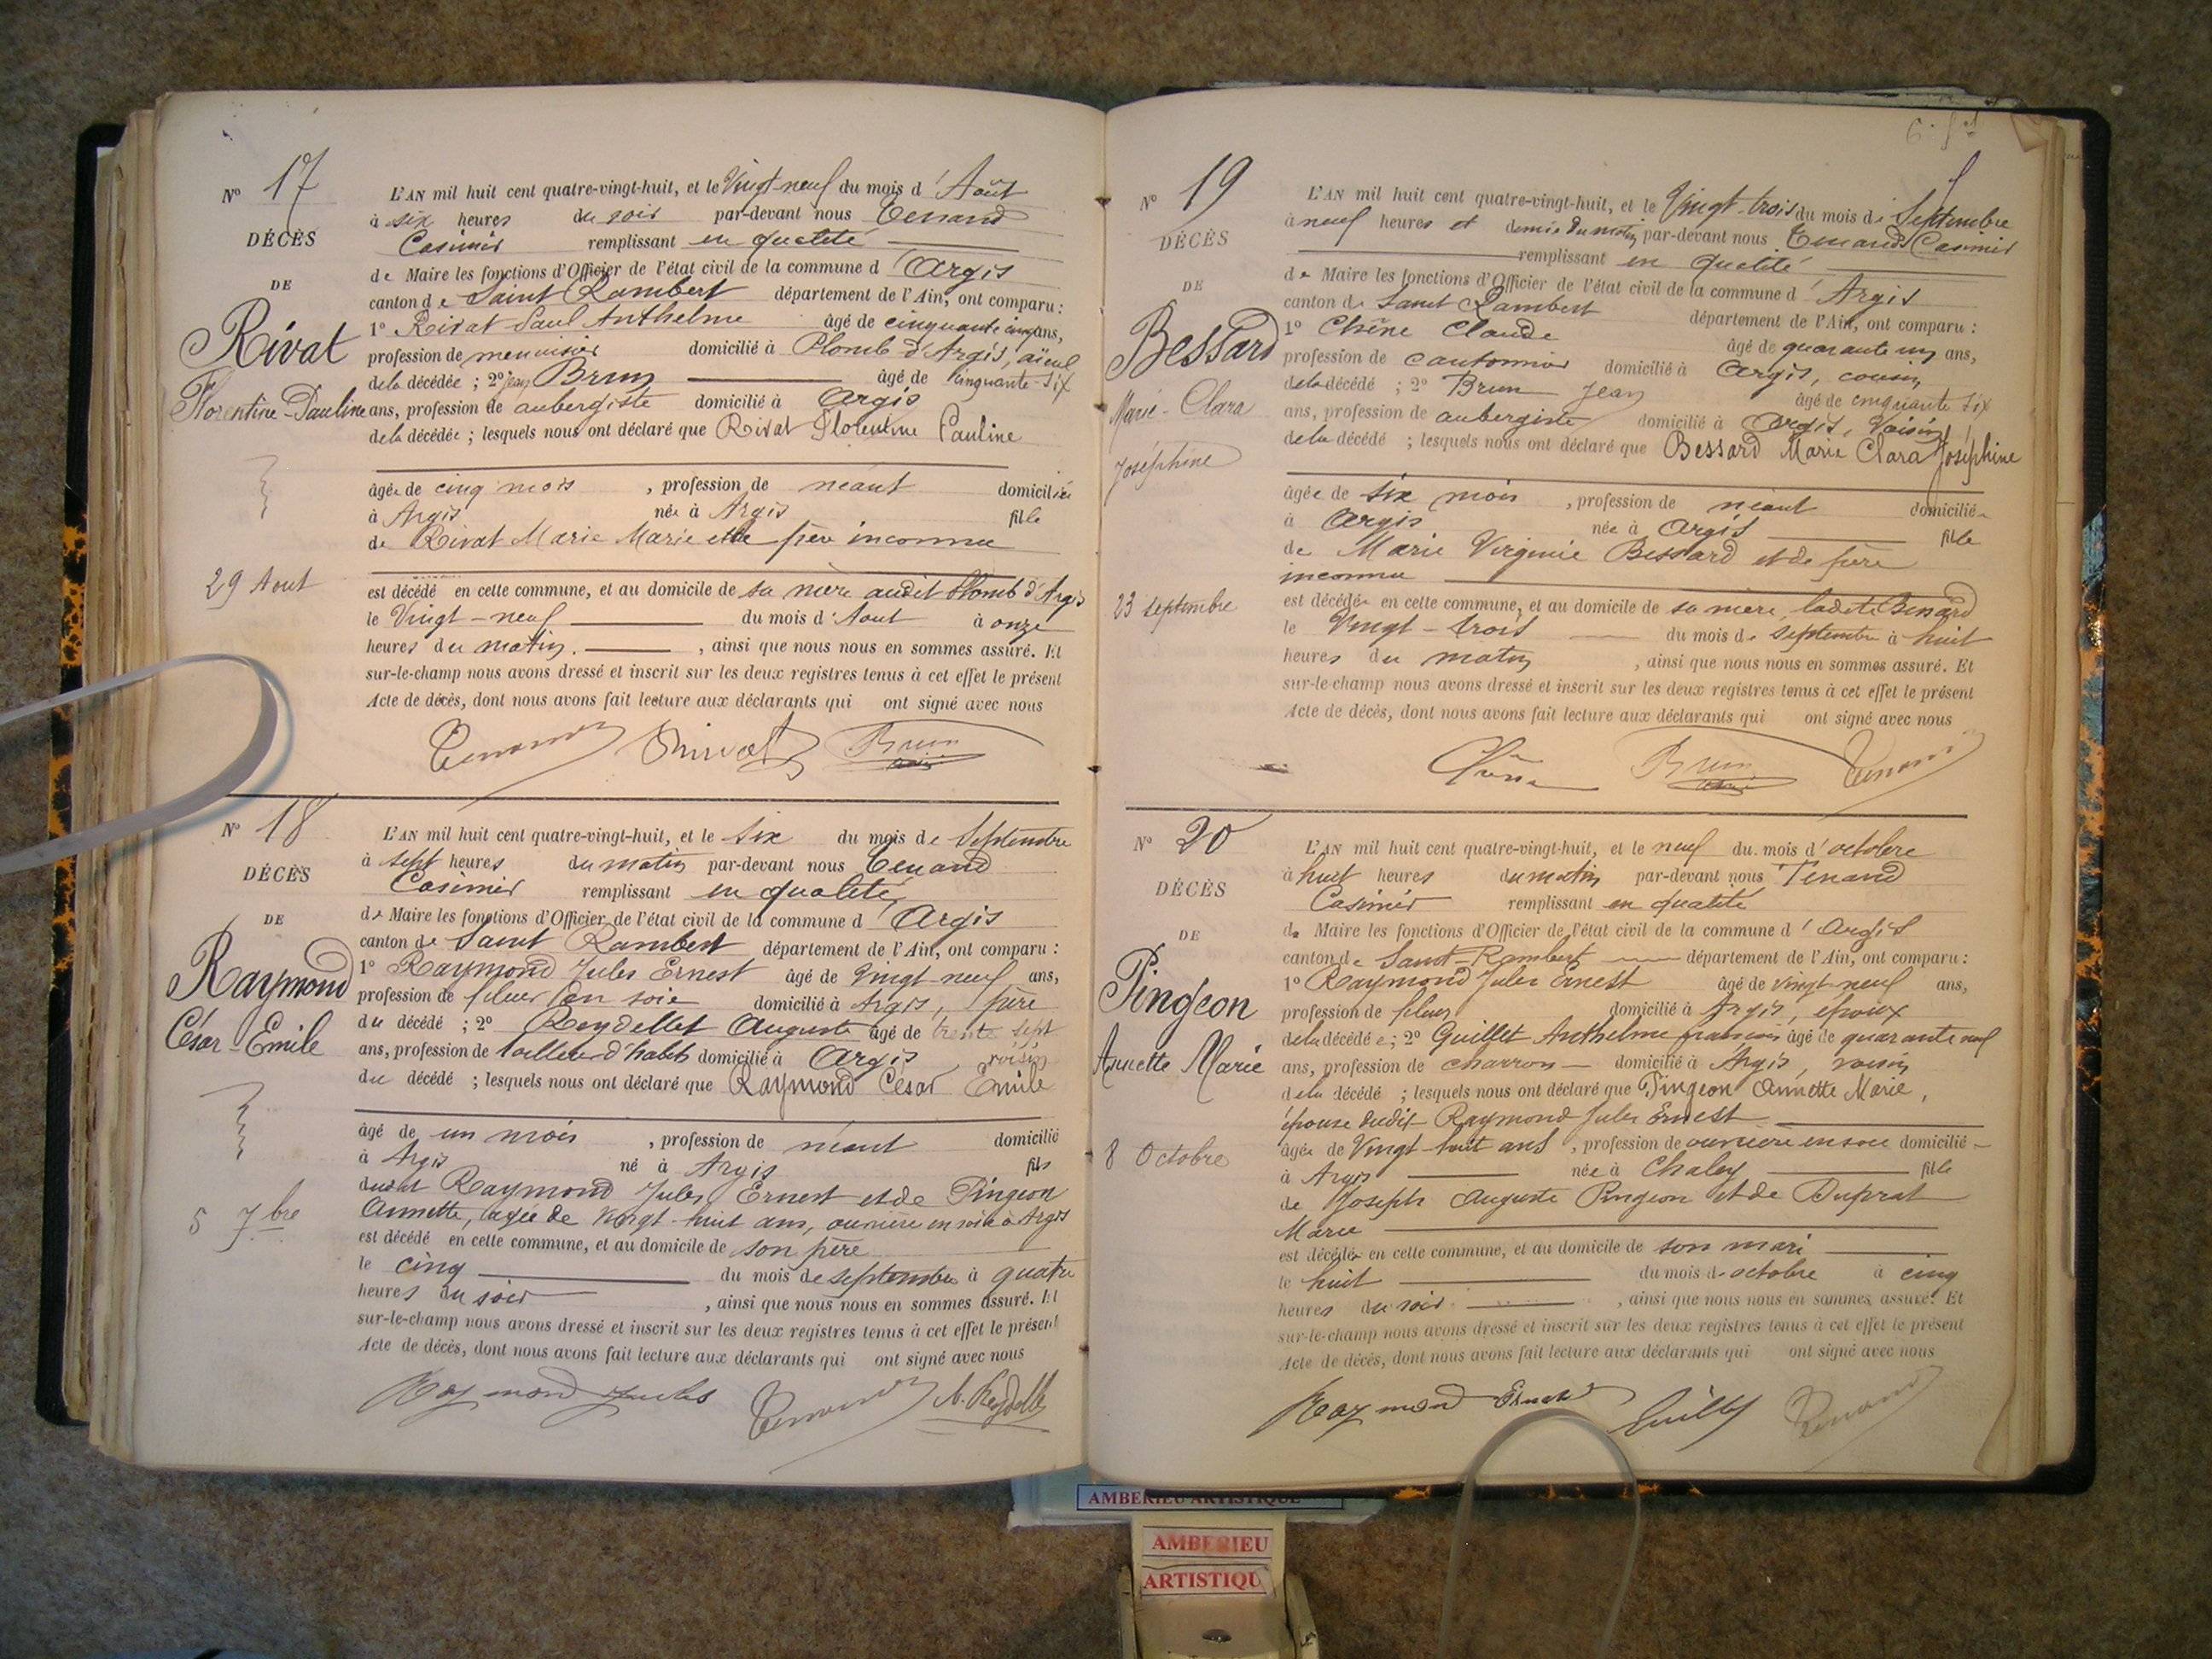 Nº 17
DÉCÈS
DE
Rivat
Florentine-Pauline
29 Aout
L'AN mil huit cent quatre-vingt-huit, et le Vingt-neuf du mois d'Août
à six heures du soir par-devant nous Tenand
Casimir remplissant en qualité
de Maire les fonctions d'Officier de l'état civil de la commune d'Argis
canton de Saint Rambert département de l'Ain, ont comparu :
1º Rivat Paul Anthelme âgé de cinquante cinq ans,
profession de menuisier domicilié à Plomb d'Argis, aïeul
de la décédée ; 2º Jean Brun âgé de cinquante-six
ans, profession de aubergiste domicilié à Argis
de la décédée ; lesquels nous ont déclaré que Rivat Florentine Pauline
âgée de cinq mois , profession de néant domiciliée
à Argis née à Argis fille
de Rivat Marie Marie et de père inconnu
est décédé en cette commune, et au domicile de sa mère audit Plomb d'Argis
le Vingt-neuf du mois d'Aout à onze
heures du matin. , ainsi que nous nous en sommes assuré. Et
sur-le-champ nous avons dressé et inscrit sur les deux registres tenus à cet effet le présent
Acte de décès, dont nous avons fait lecture aux déclarants qui ont signé avec nous
Tenand Rivat Brun
Nº 18
DÉCÈS
DE
Raymond
César-Emile
5 7bre
L'AN mil huit cent quatre-vingt-huit, et le six du mois de Septembre
à sept heures du matin par-devant nous Tenand
Casimir remplissant en qualité
de Maire les fonctions d'Officier de l'état civil de la commune d'Argis
canton de Saint Rambert département de l'Ain, ont comparu :
1º Raymond Jules Ernest âgé de Vingt-neuf ans,
profession de fileur en soie domicilié à Argis, père
du décédé ; 2º Reydellet Auguste âgé de trente sept
ans, profession de tailleur d'habits domicilié à Argis, voisin
du décédé ; lesquels nous ont déclaré que Raymond César Emile
âgé de un mois , profession de néant domicilié
à Argis né à Argis fils
dudit Raymond Jules Ernest et de Pingeon
Annette, agée de vingt-huit ans, ouvrière en soie à Argis
est décédé en cette commune, et au domicile de son père
le cinq du mois de septembre à quatre
heures du soir , ainsi que nous nous en sommes assuré. Et
sur-le-champ nous avons dressé et inscrit sur les deux registres tenus à cet effet le présent
Acte de décès, dont nous avons fait lecture aux déclarants qui ont signé avec nous
Raymond Jules Tenand A. Reydellet
Nº 19
DÉCÈS
DE
Bessard
Marie-Clara
Joséphine
23 septembre
L'AN mil huit cent quatre-vingt-huit, et le Vingt-trois du mois de Septembre
à neuf heures et demie du matin par-devant nous Tenand Casimir
remplissant en qualité
de Maire les fonctions d'Officier de l'état civil de la commune d'Argis
canton de Saint Rambert département de l'Ain, ont comparu :
1º Chêne Claude âgé de quarante un ans,
profession de cantonnier domicilié à Argis, cousin
de la décédé ; 2º Brun Jean âgé de cinquante six
ans, profession de aubergiste domicilié à Argis, voisin
de la décédé ; lesquels nous ont déclaré que Bessard Marie Clara Joséphine
âgée de six mois , profession de néant domicilié
à Argis née à Argis fille
de Marie Virginie Bessard et de père
inconnu
est décédée en cette commune, et au domicile de sa mère, ladite
le Vingt-trois du mois de septembre à huit
heures du matin , ainsi que nous nous en sommes assuré. Et
sur-le-champ nous avons dressé et inscrit sur les deux registres tenus à cet effet le présent
Acte de décès, dont nous avons fait lecture aux déclarants qui ont signé avec nous
Chêne Brun Tenand
Nº 20
DÉCÈS
DE
Pingeon
Annette Marie
8 Octobre
L'AN mil huit cent quatre-vingt-huit, et le neuf du mois d'octobre
à huit heures du matin par-devant nous Tenand
Casimir remplissant en qualité
de Maire les fonctions d'Officier de l'état civil de la commune d'Argis
canton de Saint-Rambert département de l'Ain, ont comparu :
1º Raymond Jules Ernest âgé de vingt-neuf ans,
profession de fileur domicilié à Argis, époux
de la décédée ; 2º Guillet Anthelme françois âgé de quarante neuf
ans, profession de charron domicilié à Argis, voisin
de la décédé ; lesquels nous ont déclaré que Pingeon Annette Marie,
épouse dudit Raymond Jules Ernest
âgée de Vingt-huit ans , profession de ouvrière en soie domicilié
à Argis née à Chaley fille
de Joseph Auguste Pingeon et de Duprat
Marie
est décédée en cette commune, et au domicile de son mari
le huit du mois d'octobre à cinq
heures du soir , ainsi que nous nous en sommes assuré. Et
sur-le-champ nous avons dressé et inscrit sur les deux registres tenus à cet effet le présent
Acte de décès, dont nous avons fait lecture aux déclarants qui ont signé avec nous
Raymond Ernest Guillet Tenand
AMBERIEU ARTISTIQUE
AMBERIEU
ARTISTIQU